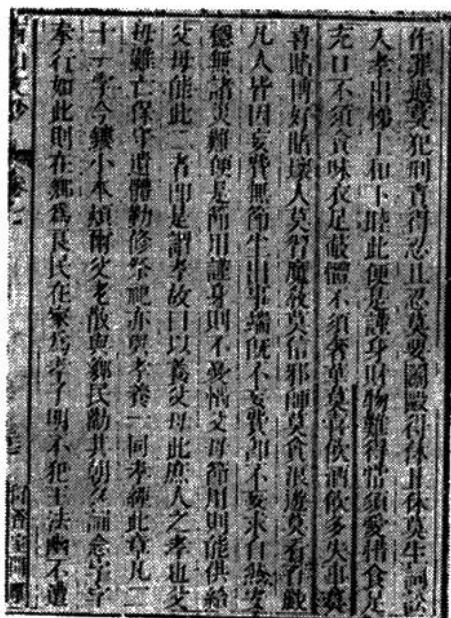 作罪過莫犯刑責得忍且忍莫要鬭毆得休且休莫生詞訟
入孝出悌上和下睦此便是謹身財物難得常須愛惜食足
充口不須貪味衣足蔽體不須奢華莫喜飲酒飲多失事莫
喜賭博好賭壞人莫習魔教莫信邪師莫貪浪遊莫看百戲
凡人皆因妄費無節生出事端既不妄費即不妄求自然安
穩無諸災難便是節用謹身則不憂惱父母節用則能供給
父母能此二者即是謂孝故曰以養父母此庶人之孝也父
母雖亡保守遺體勤修祭祀亦與孝養一同孝經此章凡二
十一字今鏤小本煩爾父老散與鄉民勸其朝夕誦念字字
奉行如此則在鄉爲良民在家爲孝子明不犯王法幽不遭
西山文鈔 卷之七